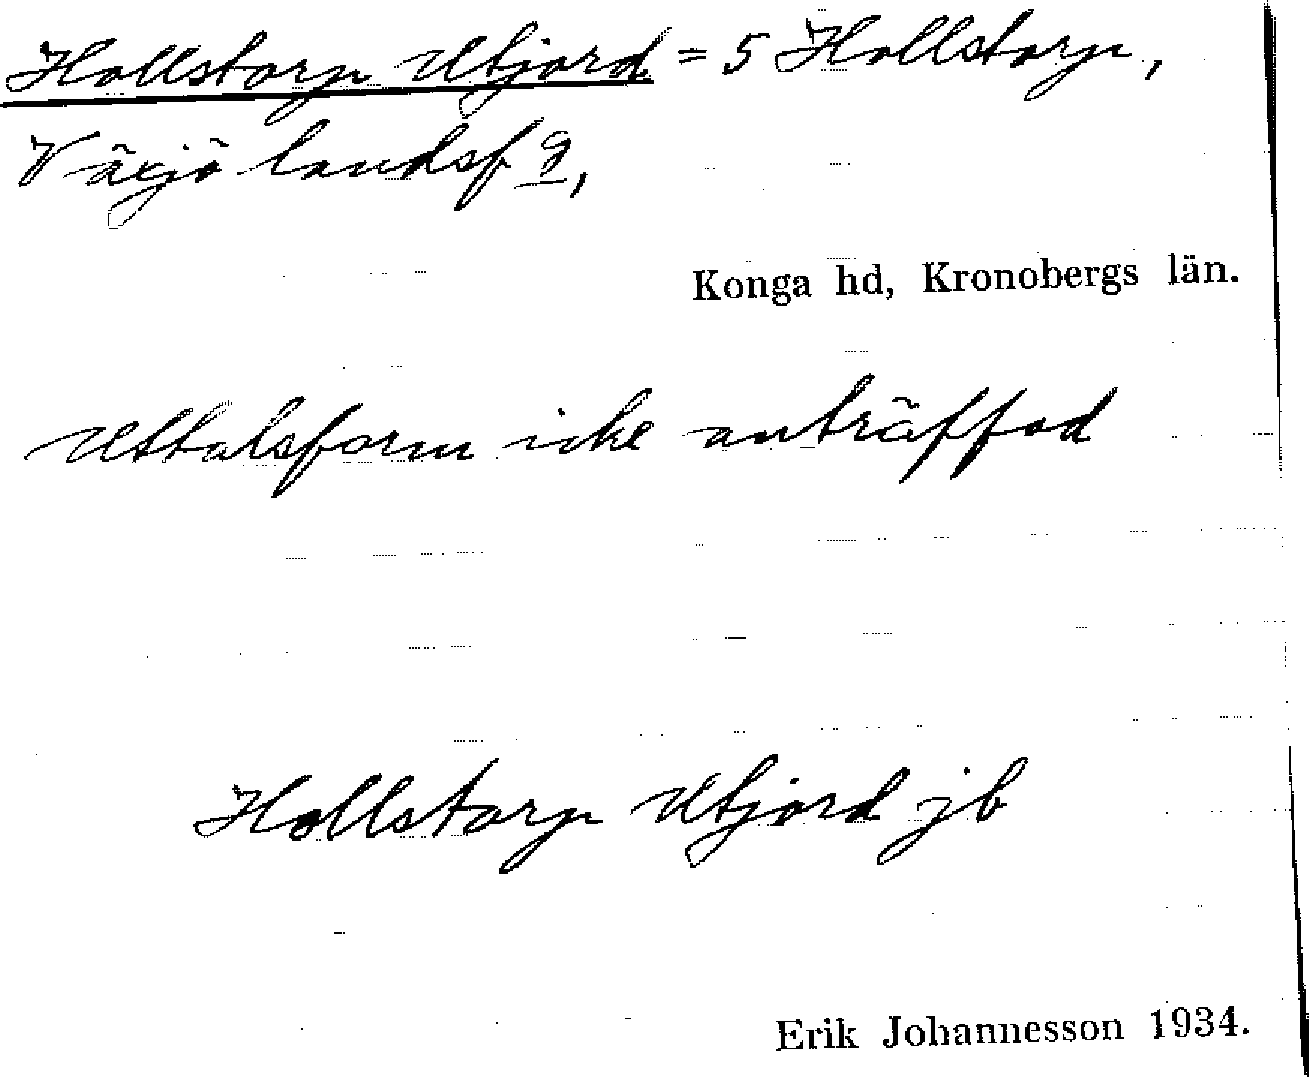 Hollstorp Utjord = 5 Hollstorp,
Växjö landsf 9,
Konga hd, Kronobergs län.
Uttalsform icke anträffad
Hollstorp Utjord jb
Erik Johannesson 1934.